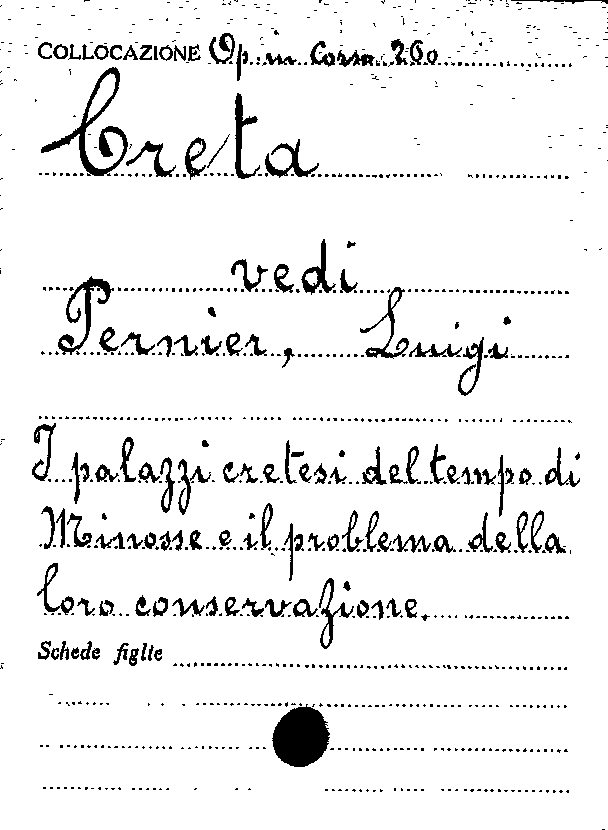 COLLOCAZIONE Op. in Corso 260
Creta
vedi
Pernier, Luigi
I palazzi cretesi del tempo di
Minosse e il problema della
loro conservazione.
Schede figlie